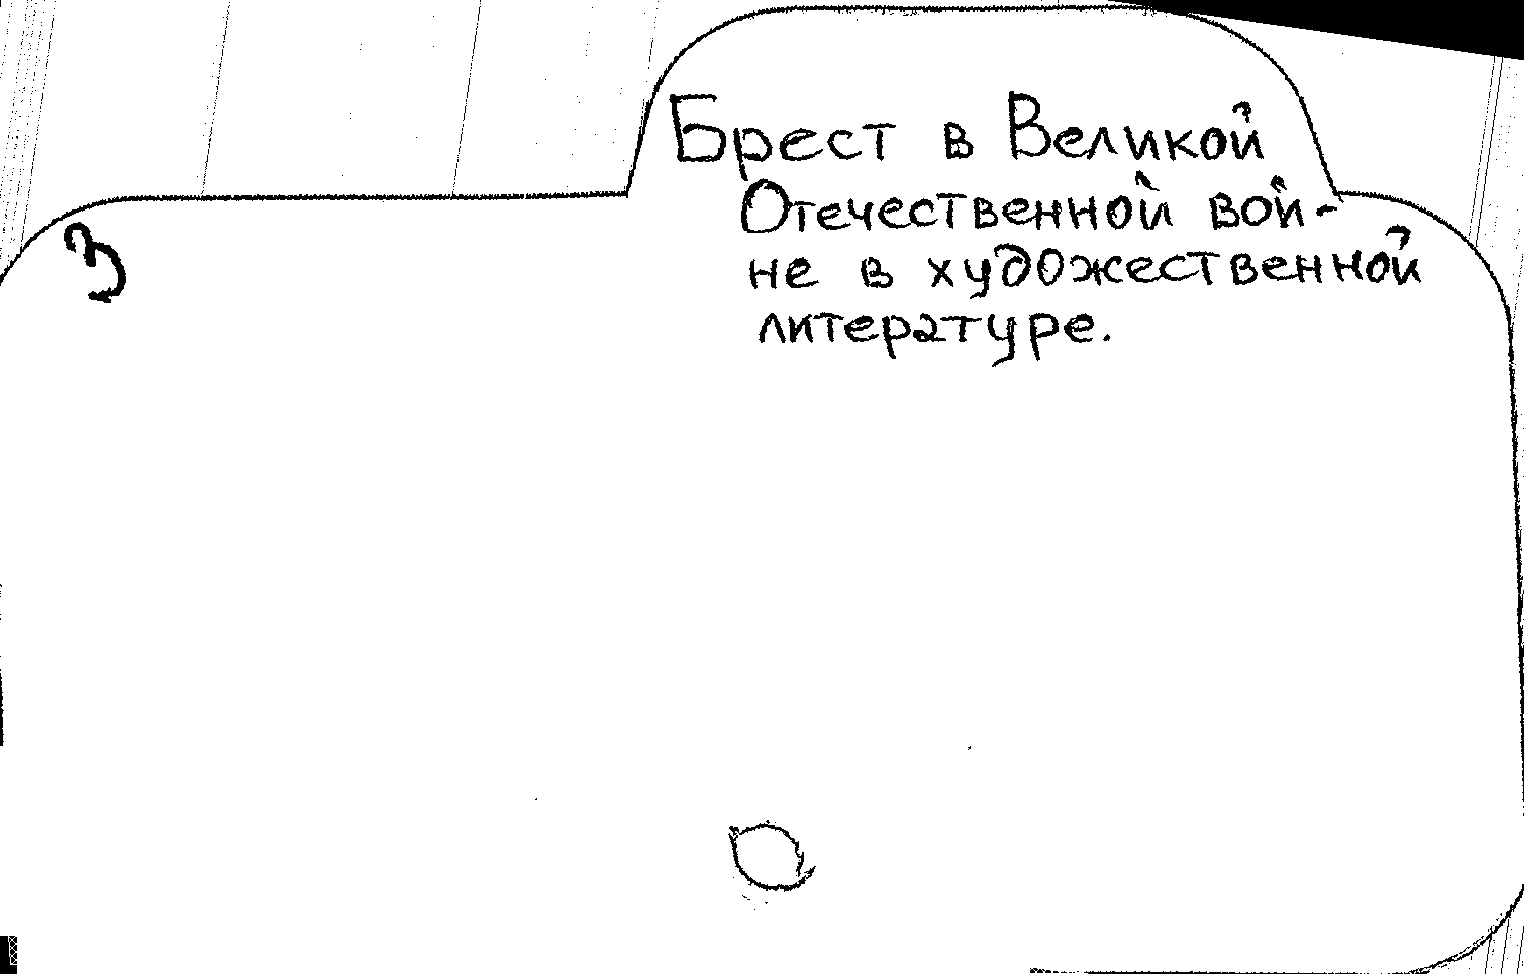 Брест в Великой
Отечественной вой-
не в художественной
литературе.
З